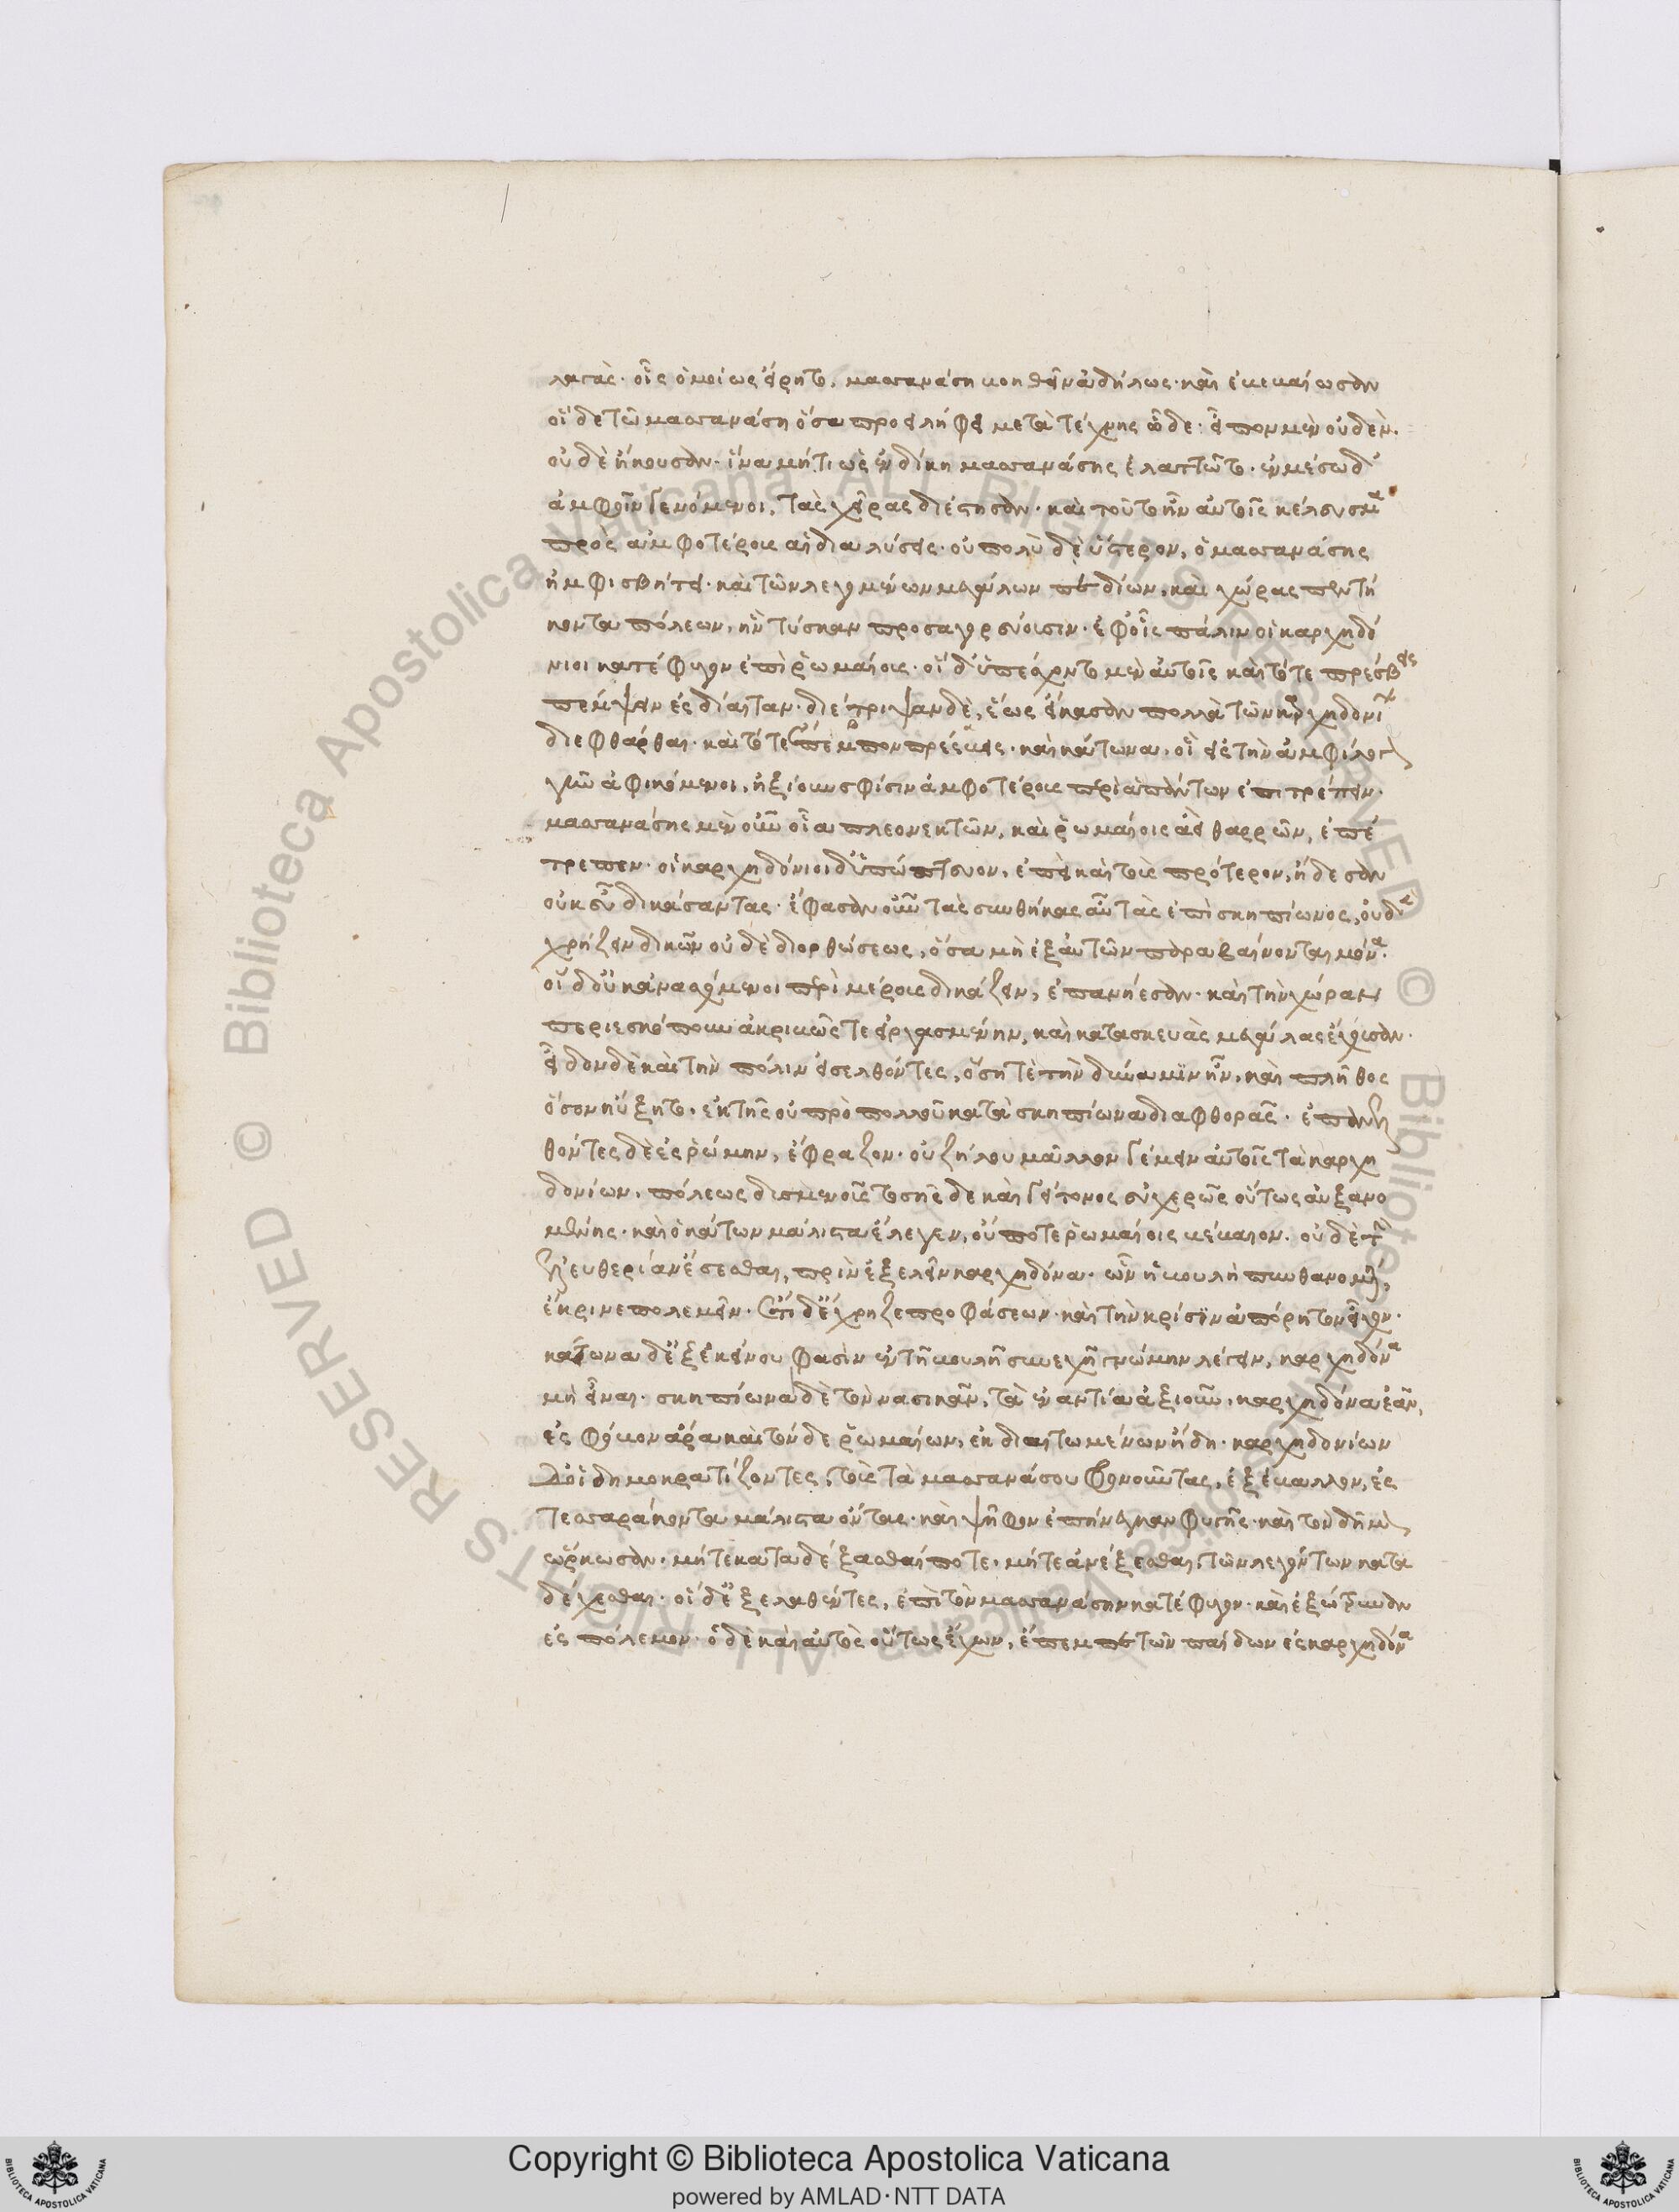 λαγὰς· οἷς ὁμοίως εἴρητο, μασσανάση βοηθεῖν ἀδήλως· καὶ ἐβεβαίωσαν
οἵδε τῶ μασσανάση ὅσα προσειλήφει μετὰ τέχνης ὧδε· εἶπον μὲν οὐδὲν.
οὐδὲ ἤκουσαν· ἵνα μήτι ὡς ἐν δίκη μασσανάσης ἐλαττῶτο· ἐν μέσω δ'
ἀμφοῖν γενόμενοι, τὰς χεῖρας διέστησαν· καὶ τοῦτο ἦν αὐτοῖς κέλευσμα
πρὸς ἀμφοτέρους αἱ διαλύσεις· οὐ πολὺ δὲ ὕστερον, ὁ μασσανάσης
ἠμφισβήτει· καὶ τῶν λεγομένων μεγάλων πεδίων, καὶ χώρας πεντή
κοντα πόλεων, ἣν τύσκαν προσαγορεύουσιν· ἐφ' οἷς πάλιν οἱ καρχηδό
νιοι κατέφυγον ἐπὶ ῥωμαίους· οἱ δ' ὑπέσχοντο μὲν αὐτοῖς καὶ τότε πρέσβεις
πέμψειν ἐς δίαιταν· διέτριψαν δὲ, ἕως εἴκασαν πολλὰ τῶν καρχηδονίων
διεφθάρθαι· καὶ τότε ἔπεμπον πρέσβεις· καὶ κάτωνα· οἳ ἐς τὴν ἀμφίλογον
γῆν ἀφικόμενοι, ἠξίουν σφίσιν ἀμφοτέρους περὶ ἁπάντων ἐπιτρέπειν·
μασσανάσης μὲν οὖν οἷα πλεονεκτῶν, καὶ ῥωμαίοις ἀεὶ θαρρῶν, ἐπέ
τρεπεν· οἱ καρχηδόνιοι δ' ὑπώπτευον, ἐπεὶ καὶ τοὺς πρότερον, ἤδεσαν
οὐκ εὖ δικάσαντας· ἔφασαν οὖν τὰς συνθήκας αὐτὰς ἐπὶ σκηπίωνος, οὐδὲν
χρήζειν δικῶν οὐδὲ διορθώσεως, ὅσα μὴ ἐξ αὐτῶν παραβαίνονται μόνα·
οἱ δ' οὐκ ἀνασχόμενοι περὶ μέρους δικάζειν, ἐπανήεσαν· καὶ τὴν χώραν
περιεσκόπουν ἀκριβῶς τε εἰργασμένην, καὶ κατασκευὰς μεγάλας ἔχουσαν·
εἶδον δὲ καὶ τὴν πόλιν ἐσελθόντες, ὅση τὲ τὴν δύναμιν ἦν, καὶ πλῆθος
ὅσον ηὔξητο. ἐκ τῆς οὐ πρὸ πολλοῦ κατὰ σκηπίωνα διαφθορᾶς· ἐπανελ
θόντες δὲ ἐς ῥώμην, ἔφραζον· οὐ ζήλου μᾶλλον γέμειν αὐτοῖς τὰ καρχη
δονίων· πόλεως δυσμενοῦς τοσῆσδε καὶ γείτονος εὐχερῶς οὕτως αὐξανο
μένης· καὶ ὁ κάτων μάλιστα ἔλεγεν, οὔποτε ῥωμαίοις βέβαιον οὐδὲ τὴν
ἐλευθερίαν ἔσεσθαι, πρὶν ἐξελεῖν καρχηδόνα· ὧν ἡ βουλὴ πυνθανομένη,
ἔκρινε πολεμεῖν· ἔτι δ' ἔχρηζε προφάσεων· καὶ τὴν κρίσιν ἀπόρρητον εἶχον·
κάτωνα δ' ἐξ ἐκείνου φασὶν ἐν τῆ βουλῆ συνεχῆ γνώμην λέγειν, καρχηδόνα
μὴ εἶναι· σκηπίωνα δὲ τὸν νασικᾶν, τὰ ἐναντία ἀξιοῦν, καρχηδόνα ἐᾶν,
ἐς φόβον ἄρα καὶ τόνδε ῥωμαίων, ἐκδιαιτωμένων ἤδη· καρχηδονίων
δ' οἱ δημοκρατίζοντες, τοὺς τὰ μασσανάσου φρονοῦντας, ἐξέβαλλον, ἐς
τεσσαράκοντα μάλιστα ὄντας· καὶ ψῆφον ἐπήνεγκαν φυγῆς· καὶ τὸν δῆμον
ὥρκωσαν· μήτε καταδέξασθαί ποτε· μήτε ἀνέξεσθαι, τῶν λεγόντων κατα
δέχεσθαι· οἱ δ' ἐξελαθέντες, ἐπὶ τὸν μασσανάσην κατέφυγον· καὶ ἐξώτρυναν
ἐς πόλεμον· ὁ δὲ καὶ αὐτὸς οὕτως ἔχων, ἔπεμπε τῶν παίδων ἐς καρχηδόνα